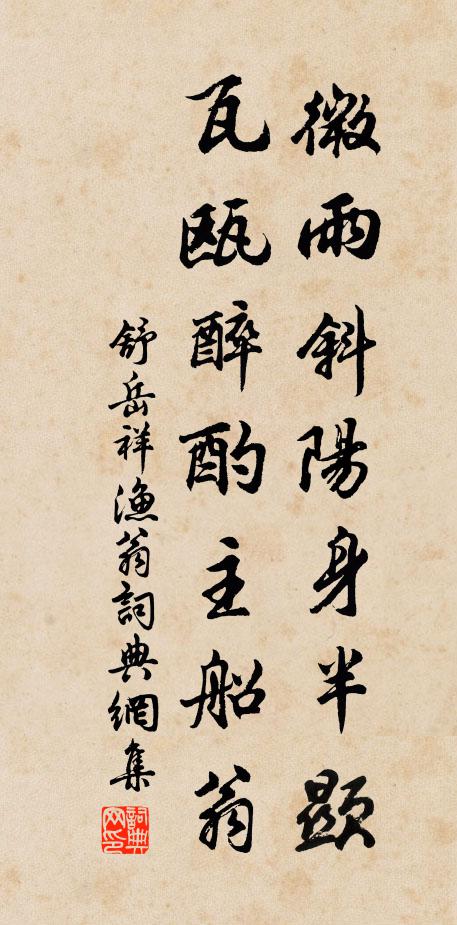 微雨斜陽身半顯
瓦甌醉酌主船翁
舒岳祥漁翁詞典網集
詞典網印